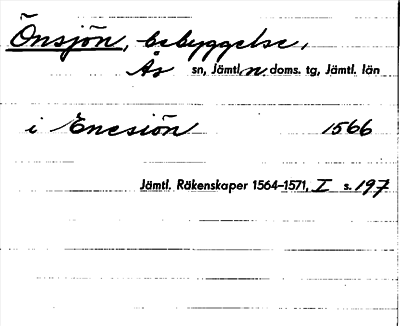 Önsjön, bebyggelse,
Ås sn, Jämtl. n. doms. tg, Jämtl. län
i Enesiön 1566
Jämtl. Räkenskaper 1564-1571, I s. 197